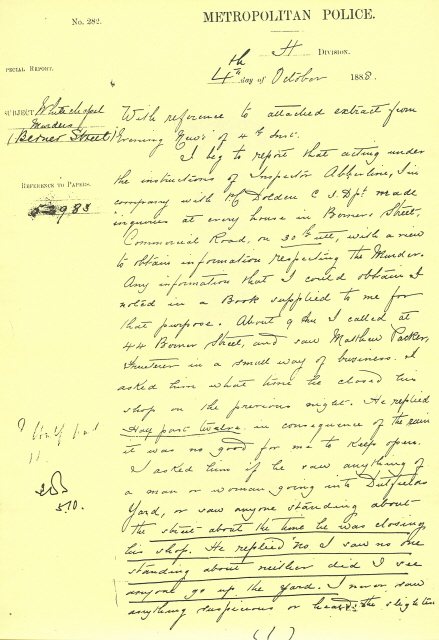 No. 282.
METROPOLITAN POLICE.
H DIVISION.
PECIAL REPORT.
4th day of October 1888.
SUBJECT Whitechapel
Murders
(Berner Street)
REFERENCE TO PAPERS.
983
With reference to attached extract from
Evening News of 4th Inst.
I beg to report that acting under
the instructions of Inspector Abberline, I in
company with P.C. Dolden C.I. Dpt. made
inquiries at every house in Berner Street,
Commercial Road, on 30th ult, with a view
to obtain information respecting the Murder.
Any information that I could obtain I
noted in a Book supplied to me for
that purpose. About 9 am I called at
44 Berner Street, and saw Matthew Packer,
Fruiterer in a small way of business. I
asked him what time he closed his
shop on the previous night. He replied
Half past twelve in consequence of the rain
it was no good for me to keep open.
I asked him if he saw anything of
a man or woman going into Dutfields
Yard, or saw anyone standing about
the street about the time he was closing
his shop. He replied "no I saw no one
standing about neither did I see
anyone go up the yard. I never saw
anything suspicious or heard the slighten
? half past
11.
(1)